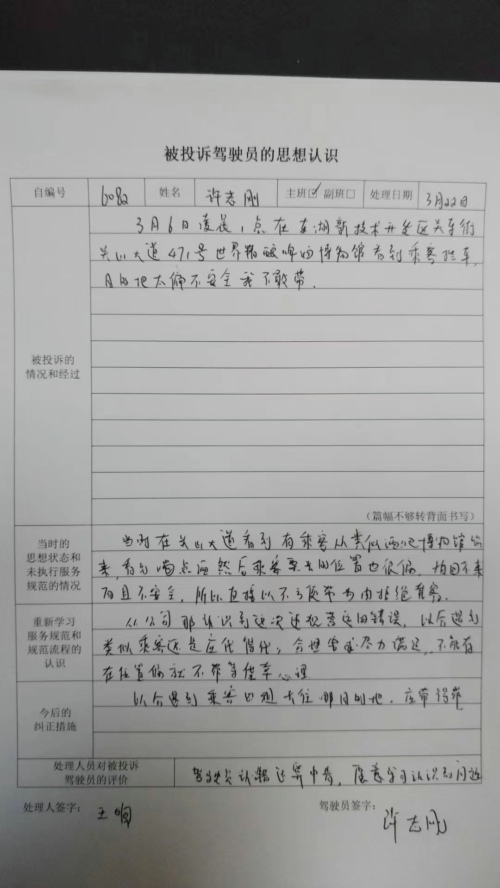 被投诉驾驶员的思想认识
自编号 6082 姓名 许志刚 主班☑ 副班☐ 处理日期 3月22日
3月6日凌晨1点在东湖新技术开发区关东街
关山大道471号世界精酿啤酒博物馆看到乘客拦车,
目的地太偏不安全我不敢带.
被投诉的
情况和经过
(篇幅不够转背面书写)
当时的
思想状态和
未执行服务
规范的情况
当时在关山大道看到有乘客从类似酒吧博物馆出
来,看到喝点酒然后乘客要去的位置也很偏,
而且不安全,所以直接以不 拒绝乘客.
重新学习
服务规范和
规范流程的
认识
从公司那认识到这次违规考核的错误,以后遇到
类似乘客还是应代替代,合理需求尽力满足,不能存
在位置偏就不带等侥幸心理
今后的
纠正措施
以后遇到乘客出租去往哪目的地,应带得带
处理人员对被投诉
驾驶员的评价
驾驶员认错还算中肯,愿意学习认识到问题
处理人签字: 王
驾驶员签字:
许志刚